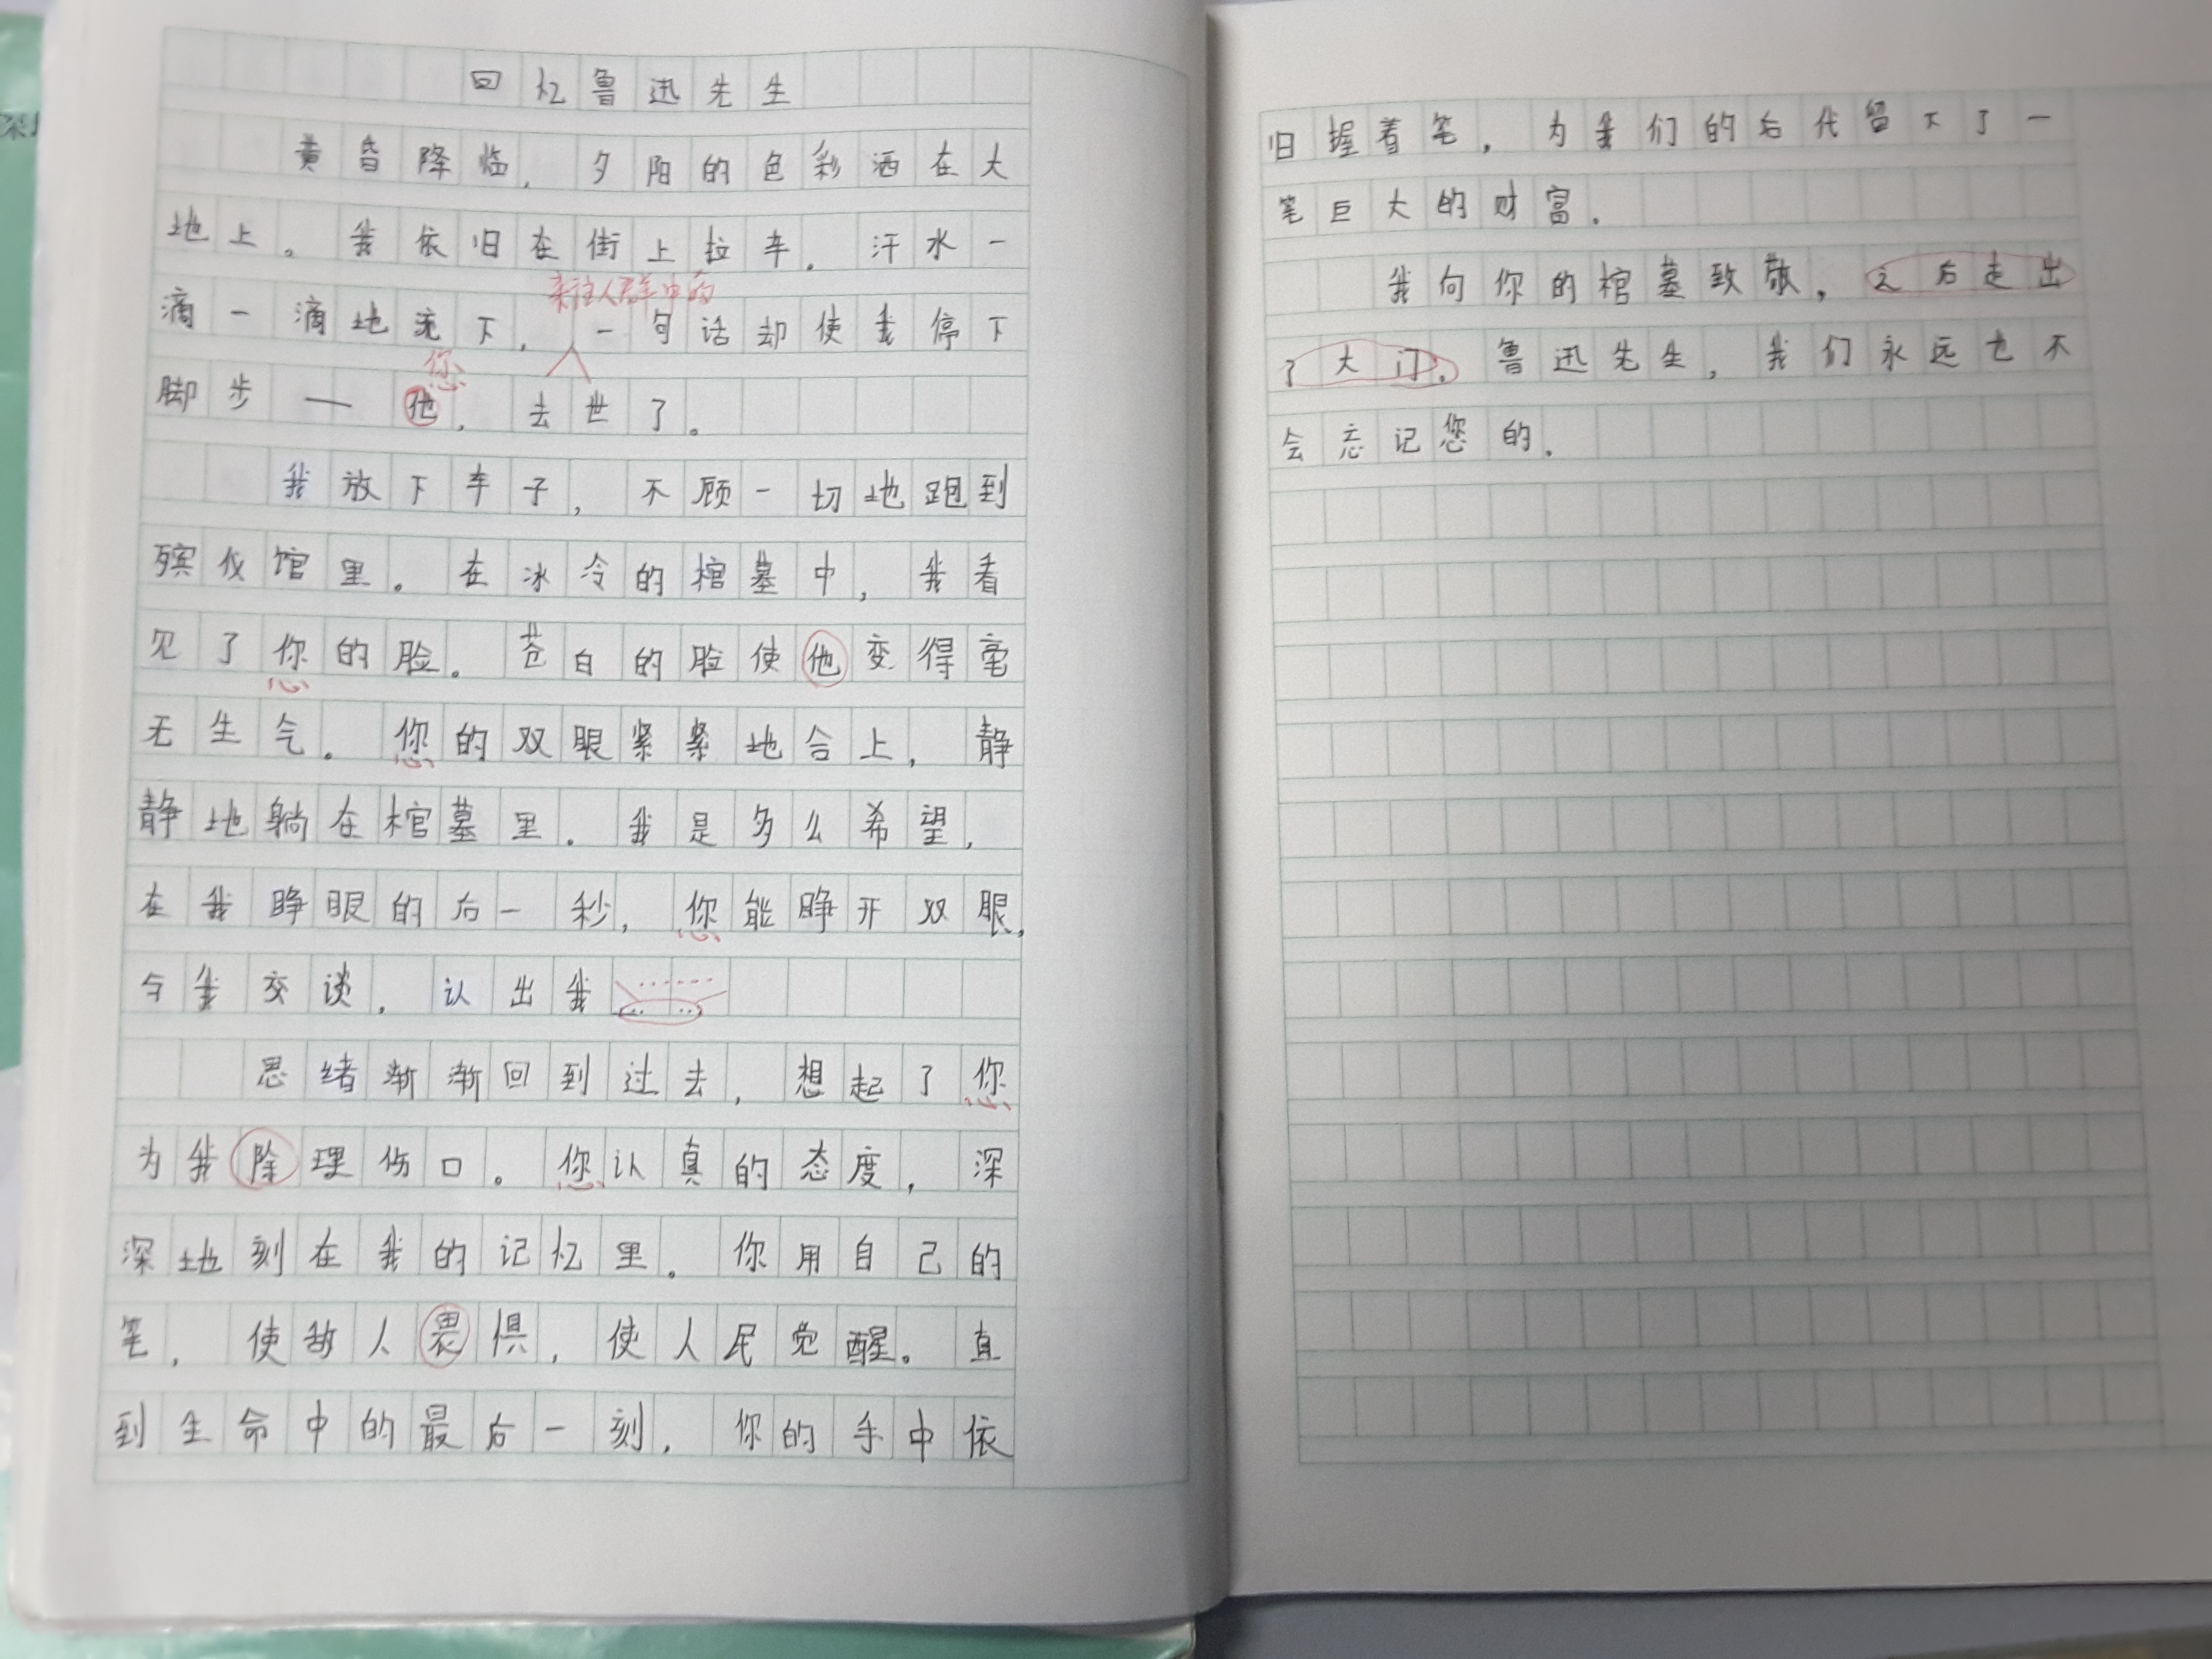 回忆鲁迅先生
黄昏降临，夕阳的色彩洒在大
地上。我依旧在街上拉车。汗水一
来往人群中的
滴一滴地流下，一句话却使我停下
您
脚步——他，去世了。
我放下车子，不顾一切地跑到
殡仪馆里。在冰冷的棺墓中，我看
见了您的脸。苍白的脸使他变得毫
无生气。您的双眼紧紧地合上，静
静地躺在棺墓里。我是多么希望，
在我睁眼的后一秒，您能睁开双眼，
与我交谈，认出我……
思绪渐渐回到过去，想起了您
为我除理伤口。您认真的态度，深
深地刻在我的记忆里。你用自己的
笔，使敌人畏惧，使人民觉醒。直
到生命中的最后一刻，你的手中依
旧握着笔，为我们的后代留下了一
笔巨大的财富。
我向你的棺墓致敬，之后走出
了大门。鲁迅先生，我们永远也不
会忘记您的。